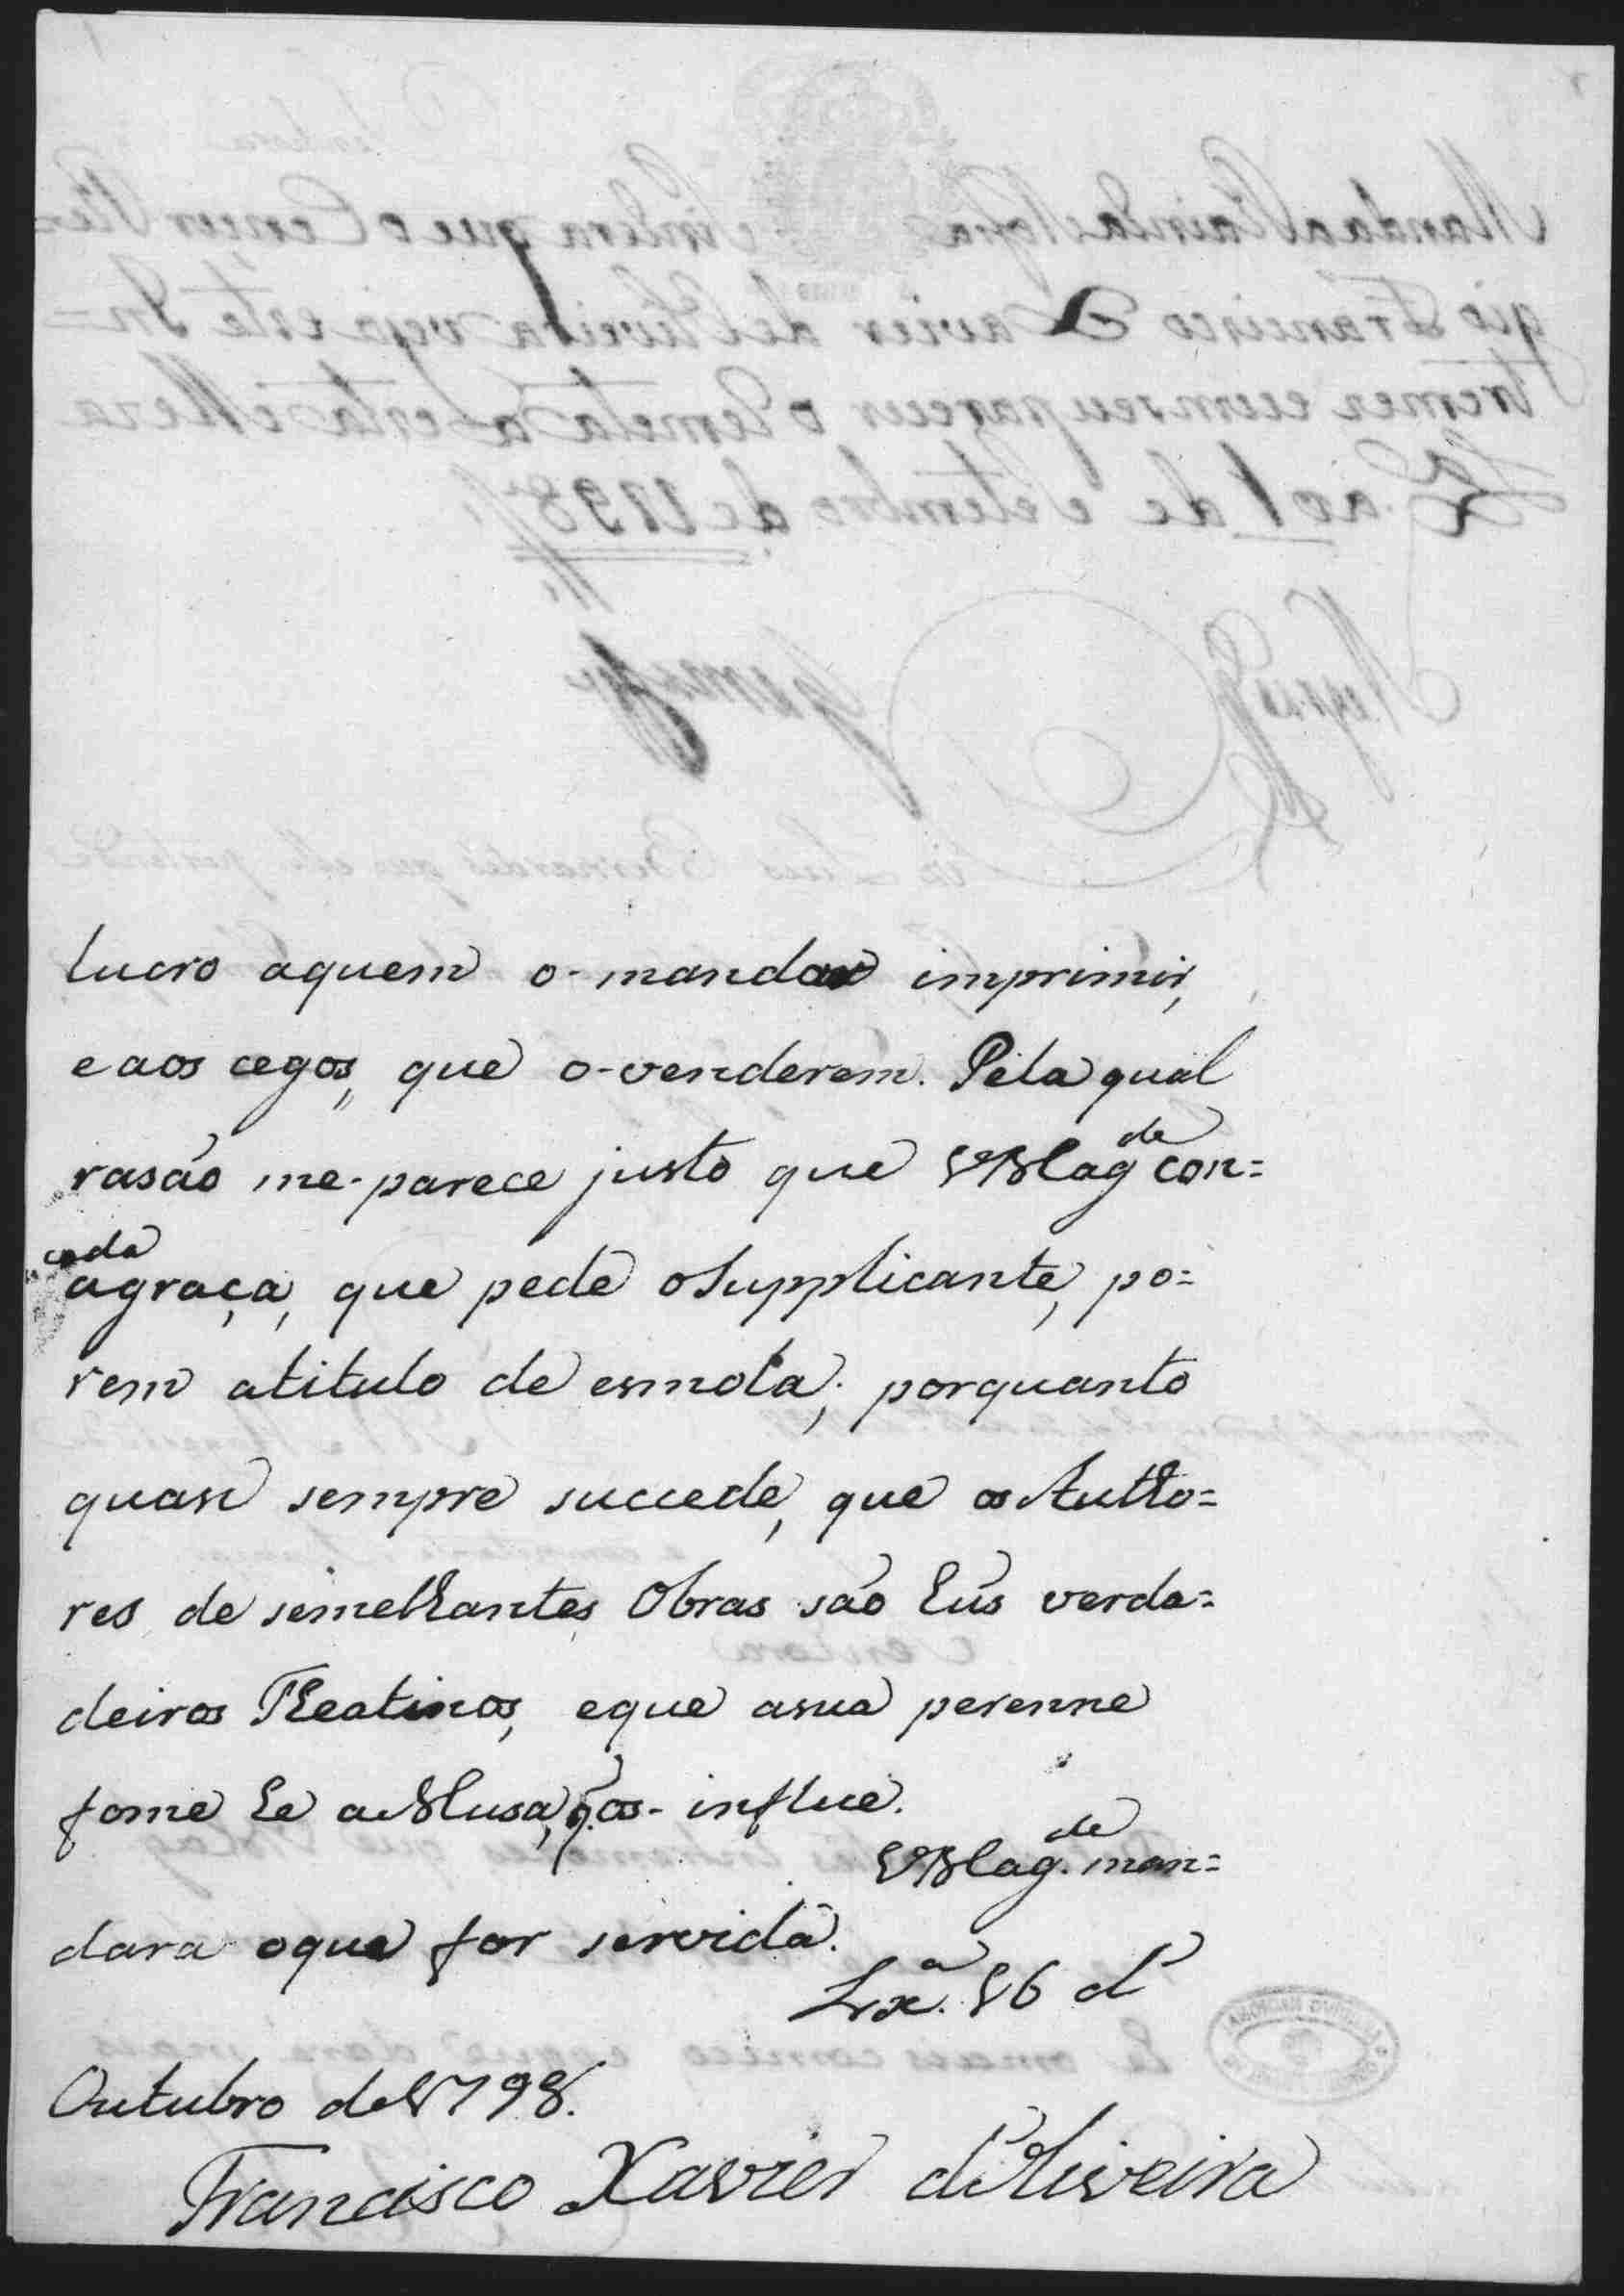 lucro aquem o-mandar imprimir,
e aos cegos, que o-venderem. Pela qual
rasaõ me-parece justo que VMag.de con=
ceda
agraça, que pede oSupplicante, po=
rem atitulo de esmola; porquanto
quasi sempre succede, que os Autho=
res de semelhantes Obras saõ huns verda=
deiros Theatinos, eque asua perenne
fome he a Musa, q os-influe.
VMag.de man=
dara oque for servida.
Lx.a 16 d'
Outubro de 1798.
Francisco Xavier d'Oliveira